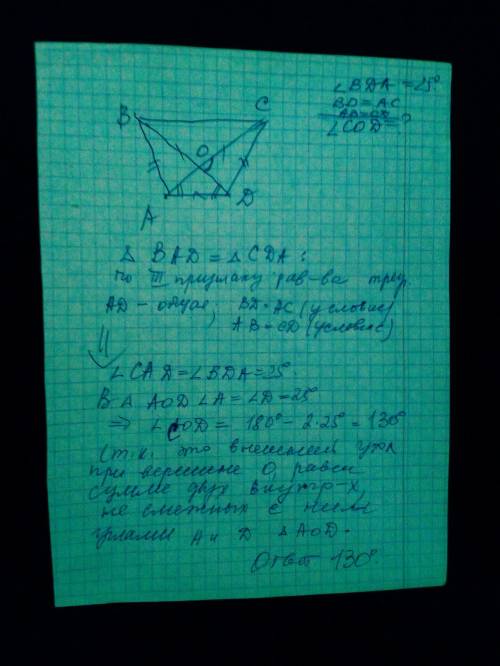 ∠BDA = 25°
BD = AC
AB = CD
∠COD = ?
B
C
O
A
D
Δ BAD = Δ CDA:
по III признаку рав-ва треуг.
AD - общая, BD = AC (условие)
AB = CD (условие)
⇓
∠CAD = ∠BDA = 25°.
В Δ AOD ∠A = ∠D = 25°
⇒ ∠COD = 180° - 2·25° = 130°
(т.к. это внешний угол
при вершине O, равен
сумме двух внутр-х,
не смежных с ним
углами A и D Δ AOD.
Ответ 130°.